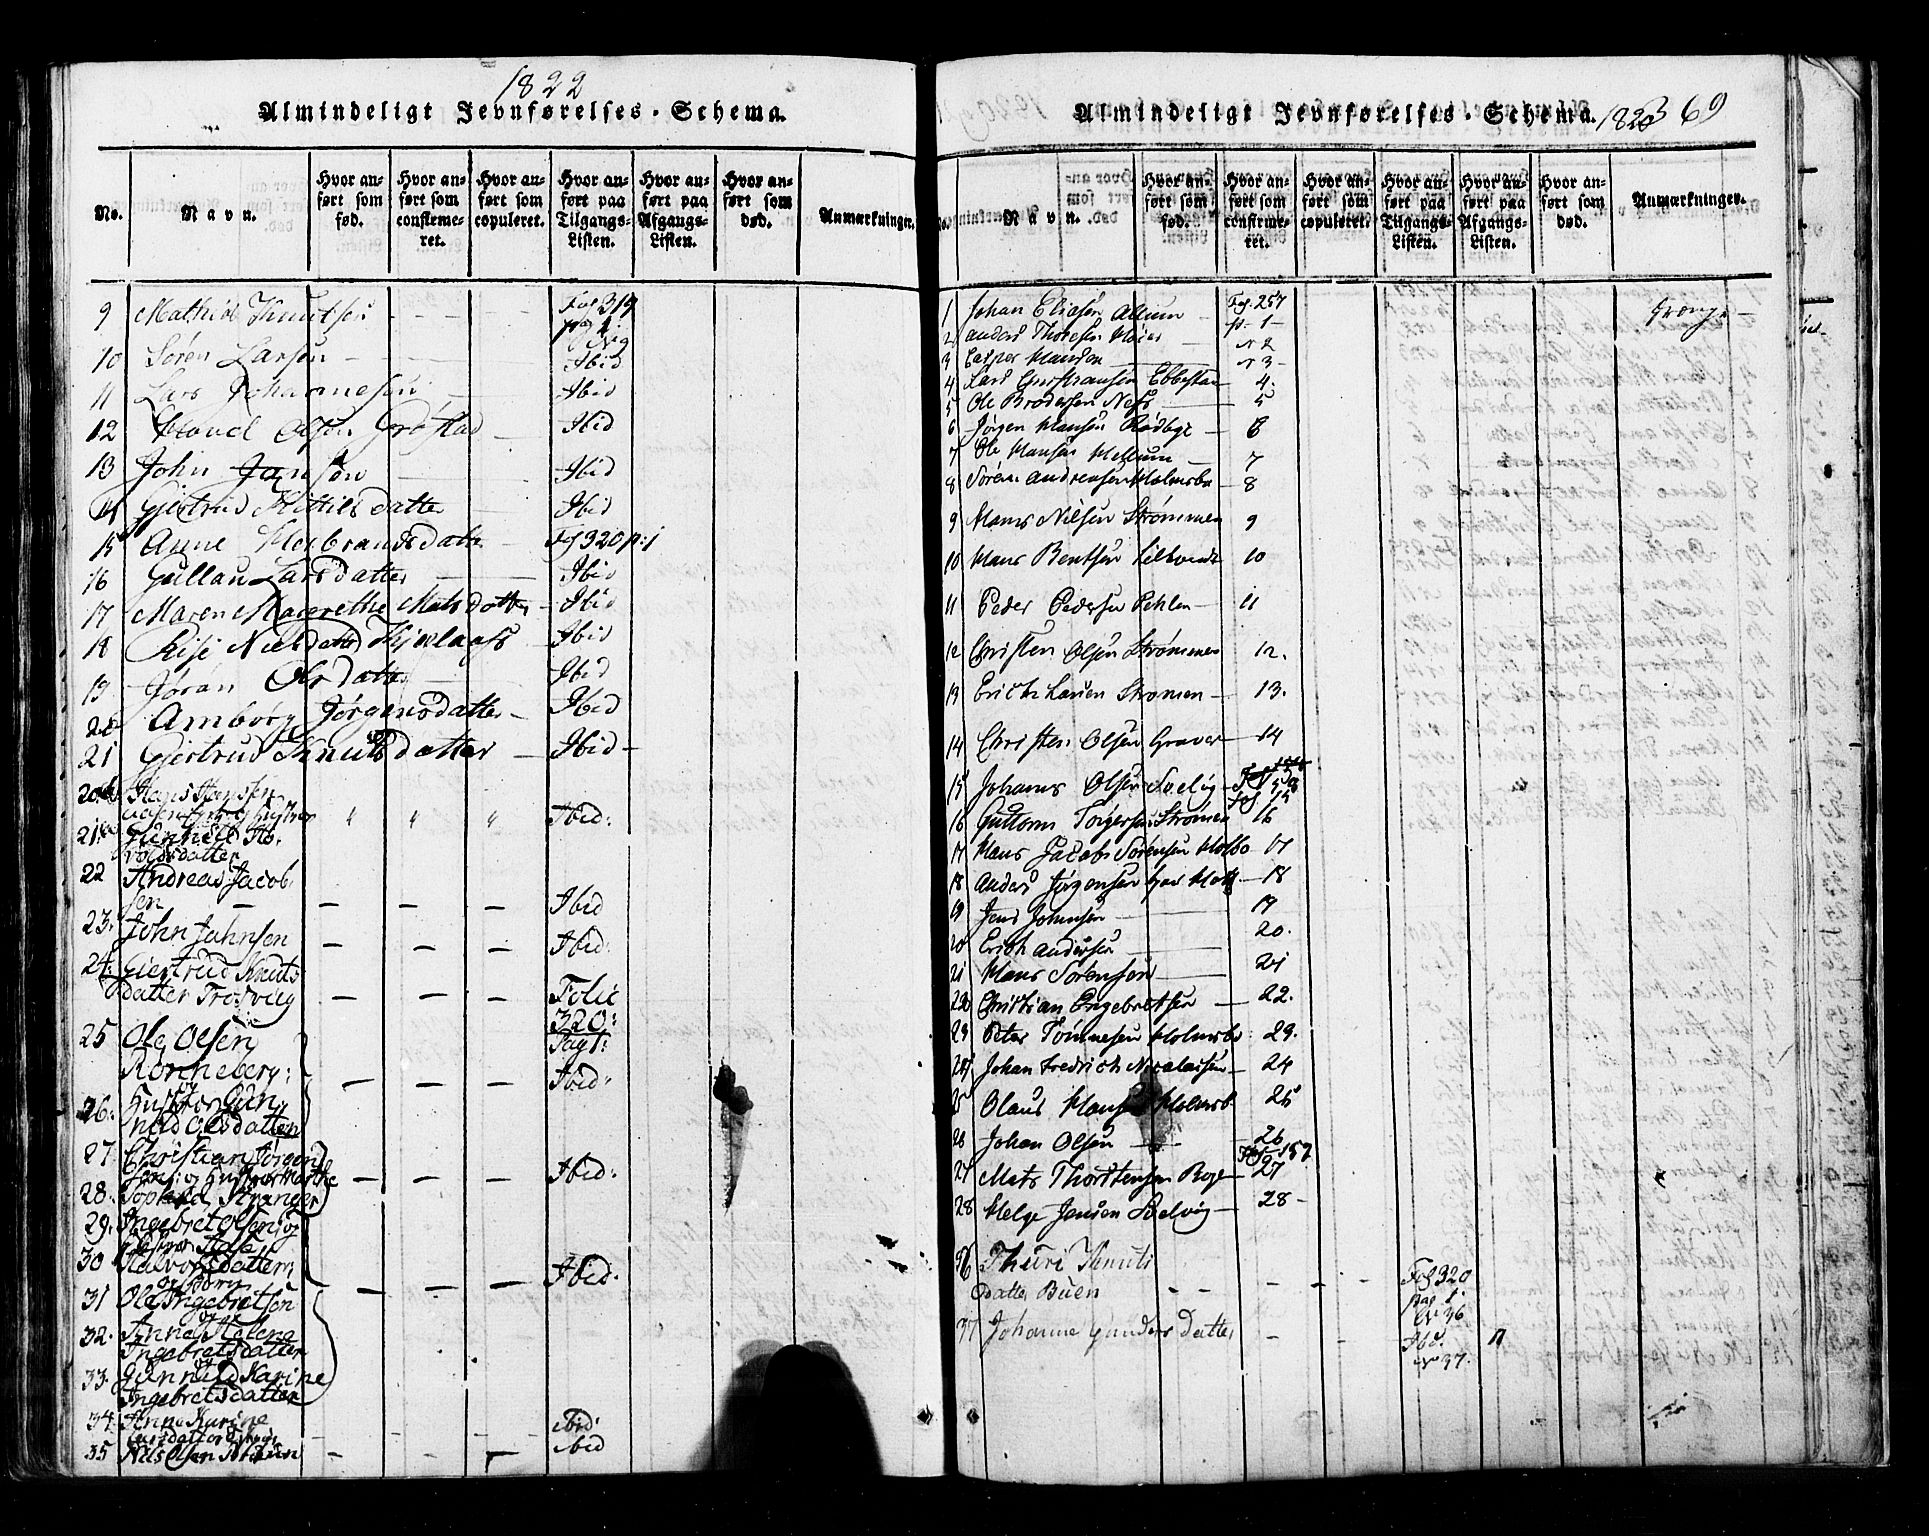 1822
Almindeligt Jevnførelses-Schema.
No.
Navn.
Hvor anført som fød.
Hvor anført som confirmeret.
Hvor anført som copuleret.
Hvor anført paa Tilgangs-Listen.
Hvor anført paa Afgangs-Listen.
Hvor anført som død.
Anmærkninger.
9 Knutsen Fol 319
10 Søren Larsen Ibid
11 Lars Johannesen Ibid
12 Olsen Ibid
13 John Jansøn Ibid
14 Gjertrud Kittilsdatter Ibid
15 Anne Fol 320 p: 1
16 Gullau Larsdatter Ibid
17 Maren Magrethe Matsdatter Ibid
18 Nielsdatter Ibid
19 Jøran Olsdatter Ibid
20 Amborg Jørgensdatter Ibid
21 Gjertrud Knutsdatter Ibid
Hans Hansen
Ibid:
22 Andreas Jacob
sen Ibid
23. John Johnsen Ibid:
24. Giertrud Knuts
datter Trosvieg Folie
320:
25 Ole Olsen Pag 1:
Ronneberg: Ibid:
og
26. Hustroe Gun
nild Olsdatter
27. Christian Jørgen
Ibid:
28.
29. Ingebret Olsen og
30 Halvorsdatter Ibid:
31 Ole Ingebretsen
32. Anne Helene
Ingebretsdatter
33. Gunnild Karine
Ingebretsdatter
34. Anne Karine ibid:
35 Nils Olsen ibid
Almindeligt Jevnførelses-Schema. 1823 69
No.
Navn.
Hvor anført som fød.
Hvor anført som confirmeret.
Hvor anført som copuleret.
Hvor anført paa Tilgangs-Listen.
Hvor anført paa Afgangs-Listen.
Hvor anført som død.
Anmærkninger.
1 Johan Eliasen Allum Fol. 257 Drenge
2 Anders Thoresen p. 1
N 2
3 Casper Hansen N 3
4 Lars Christiansen Ebbestad 4.
5 Ole Brodersen Ness 5
6 Jørgen Hansen Rødbye 6
7 Ole Hansen Mellum 7
8 Søren Andreasen Holmsbo 8
9 Hans Nilsen Strømmen 9
10 Hans Bentsen 10
11 Peder Pedersen 11
12 Christen Olsen Strømmen 12.
13 Erich Larsen Strømen 13.
14 Christen Olsen Graver 14
15 Johannes Olsen Svelvig 15
16 Guttorm Torgersen Strømen 16
17 Hans Jacob Sørensen Holsbo 17
18 Anders Jørgensen 18
19 Jens Johnsen 19
20 Erich Andersen 20.
21 Hans Sørensøn 21
22 Christian Engebretsen 22.
23 Peter Tønnesen Holmsbo 23.
24 Johan Fredrich Nicolaisen 24
25 Olaus Hansen Holmsb 25
26 Johan Olsen 26
27 Mats Thorstensen Roge 27
28 Helge Jensen Svelvig 28
36 Thuri Knuts
datter Buen Fol 320
Pag 1.
N 36
37 Johanne Gundersdatter Ibd.
N 37.